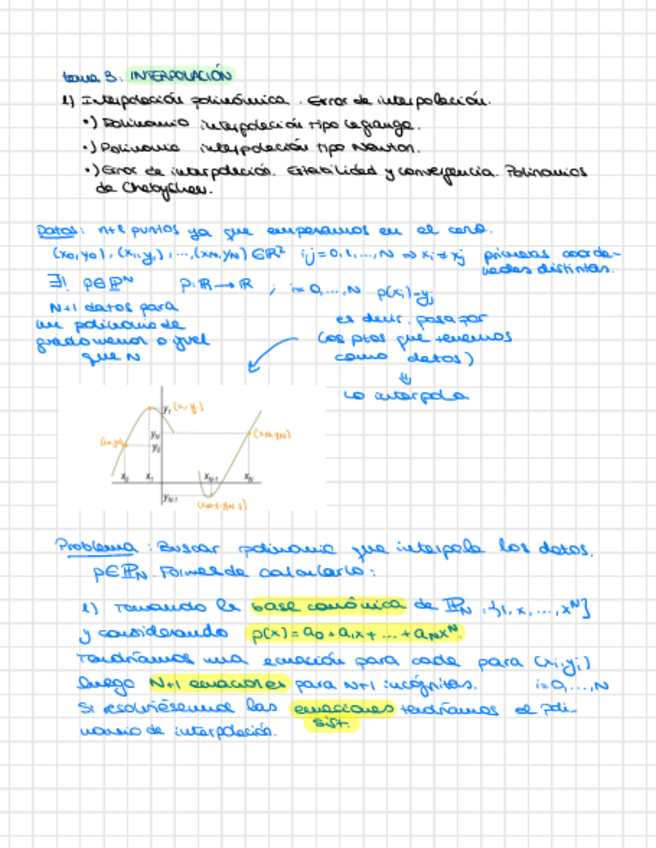 tema 3: INTERPOLACIÓN
1) Interpolación polinómica. Error de interpolación.
•) Polinomio interpolación tipo Lagrange.
•) Polinomio interpolación tipo Newton.
•) Error de interpolación. Estabilidad y convergencia. Polinomios
de Chebyshev.
Datos: n+1 puntos ya que empezamos en el cero.
(x0,y0), (x1,y1), ..., (xN,yN) ∈ ℝ² i,j=0,1,...,N ⇒ xi≠xj primeras coorde-
nadas distintas.
∃! p∈ℙN p:ℝ→ℝ ; i=0,...,N p(xi)=yi
N+1 datos para
un polinomio de
grado menor o igual
que N
es decir, pasa por
los ptos que tenemos
como datos)
⇓
lo interpola
y1 (x1,y1)
(x0,y0) yN (xN,yN)
y0
x0 x1 xN-1 xN
yN-1
(xN-1,yN-1)
Problema: Buscar polinomio que interpola los datos.
p∈ℙN. Formas de calcularlo:
1) Tomando la base canónica de ℙN, {1,x,...,xᴺ}
y considerando p(x)=a0+a1x+...+aNxᴺ.
Tendríamos una ecuación para cada para (xi,yi)
luego N+1 ecuaciones para N+1 incógnitas. i=0,...,N
Si resolviésemos las ecuaciones tendríamos el poli-
sist.
nomio de interpolación.